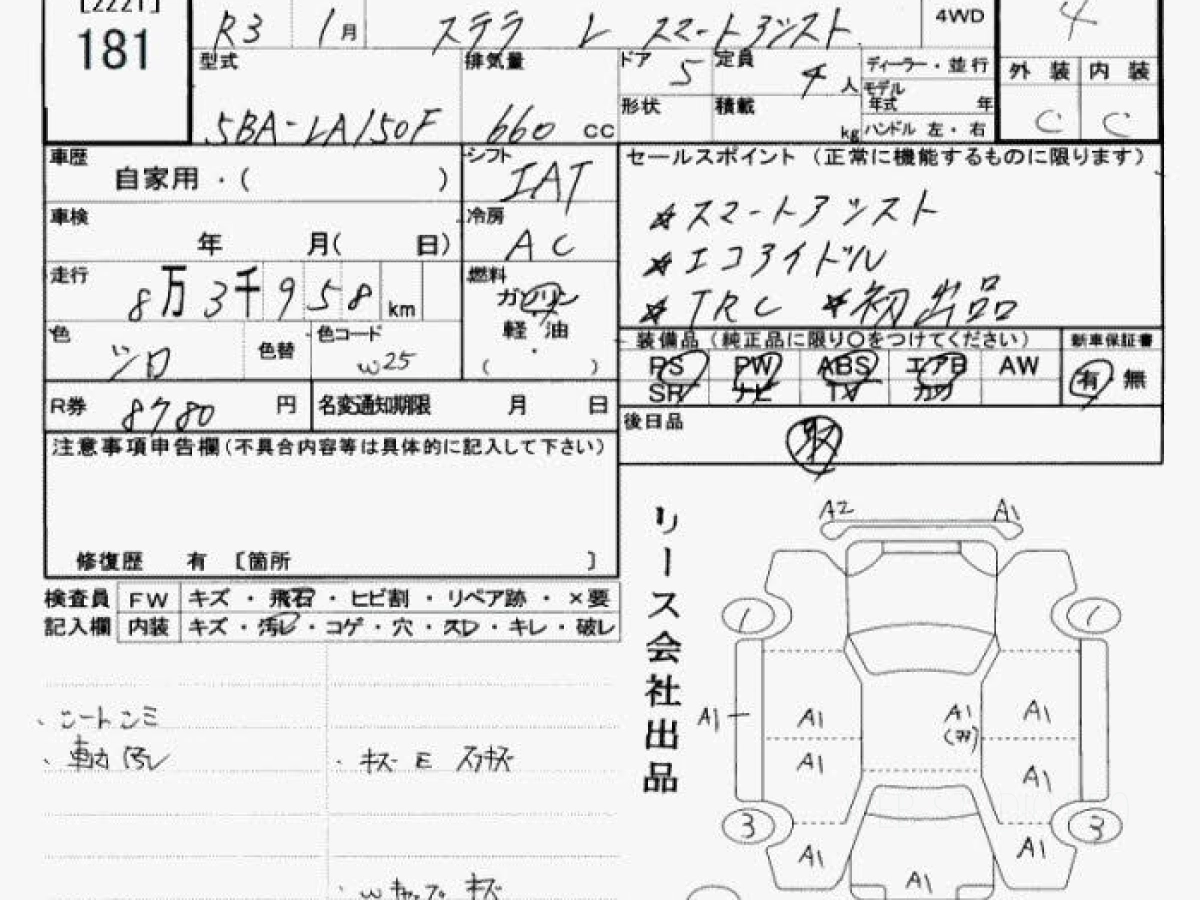 [2221]
181
R3 1月 ステラ L スマートアシスト 4WD 4
型式 5BA-LA150F
排気量 660 cc
ドア 5 定員 4 人
形状 積載 kg
ディーラー・並行
モデル年式 年
ハンドル 左・右
外装 内装
C C
車歴 自家用・( )
シフト IAT
車検 年 月( 日)
冷房 AC
走行 8万3千958 km
燃料 ガソリン
軽油
( )
色 シロ 色替 色コード W25
R券 8780 円 名変通知期限 月 日
セールスポイント (正常に機能するものに限ります)
★スマートアシスト
★エコアイドル
★TRC ★初出品
装備品 (純正品に限り〇をつけてください) 新車保証書
PS PW ABS エアB AW 有 無
SR ナビ TV カワ
後日品
取
注意事項申告欄(不具合内容等は具体的に記入して下さい)
修復歴 有 〔箇所 〕
検査員 FW キズ・飛石・ヒビ割・リペア跡・×要
記入欄 内装 キズ・汚レ・コゲ・穴・スレ・キレ・破レ
、シートシミ
、車内汚レ
・キズ E スリキズ
・Wキャップ キズ
リース会社出品
A2 A1
1 1
A1 A1 A1 A1
A1 A1
3 3
A1 A1
A1